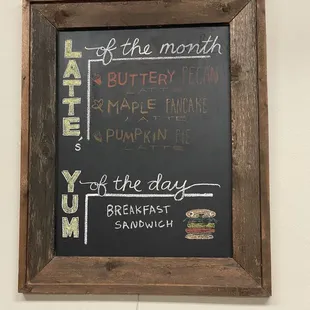 LATTE's of the month
BUTTERY PECAN
LATTE
MAPLE PANCAKE
LATTE
PUMPKIN PIE
LATTE
YUM of the day
BREAKFAST
SANDWICH